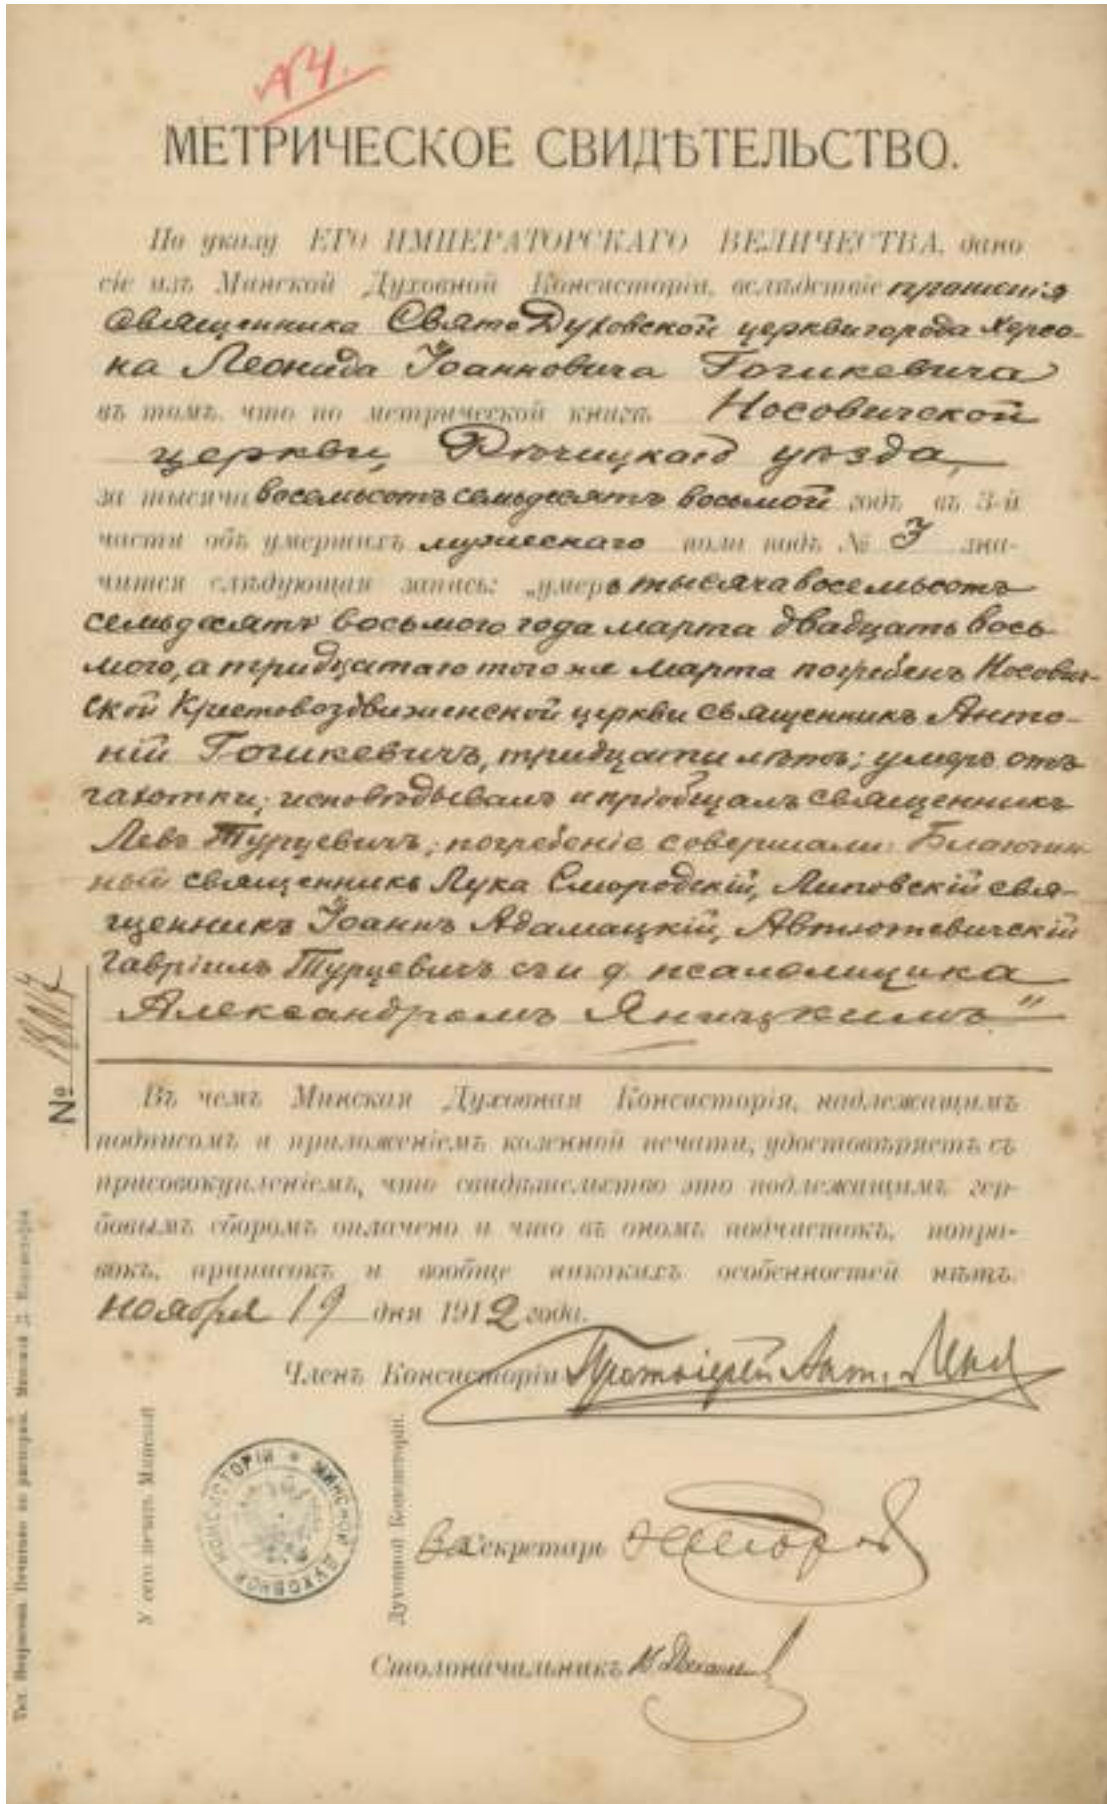 № 4.
МЕТРИЧЕСКОЕ СВИДѢТЕЛЬСТВО.
По указу ЕГО ИМПЕРАТОРСКАГО ВЕЛИЧЕСТВА, дано
сіе изъ Минской Духовной Консисторіи, вслѣдствіе прошенія
священника Свято Духовской церкви города Херсо-
на Леонида Іоанновича Гошкевича
въ томъ, что по метрической книгѣ Носовичской
церкви, Рѣчицкаго уѣзда,
за тысяча восемьсотъ семьдесятъ восьмой годъ въ 3-й
части объ умершихъ мужескаго пола подъ № 3 зна-
чится слѣдующая запись: „умеръ тысяча восемьсотъ
семьдесятъ восьмого года марта двадцать вось
мого, а тридцатаго того же марта погребенъ Носович-
ской Крестовоздвиженской церкви священникъ Анто-
ній Гошкевичъ, тридцати лѣтъ; умеръ отъ
чахотки; исповѣдывалъ и пріобщалъ священникъ
Левъ Турцевичъ; погребеніе совершали: Благочин-
ный священникъ Лука Смородскій, Липовскій свя-
щенникъ Іоаннъ Адамацкій, Автютевичскій
Гавріилъ Турцевичъ съ и д. псаломщика
Александромъ Яницкимъ"
№
Въ чемъ Минская Духовная Консисторія, надлежащимъ
подписомъ и приложеніемъ казенной печати, удостовѣряетъ съ
присовокупленіемъ, что свидѣтельство это подлежащимъ гер-
бовымъ сборомъ оплачено и что въ ономъ подчистокъ, попра-
вокъ, приписокъ и вообще никакихъ особенностей нѣтъ.
ноября 19 дня 1912 года.
Членъ Консисторіи Протоіерей Ант.
У сего печать Минской
Духовной Консисторіи.
МИНСКОЙ ДУХОВНОЙ КОНСИСТОРІИ
За Секретарь
Столоначальникъ
Тип. Некрасова. Печатано по распоряж. Минской Д. Консисторіи